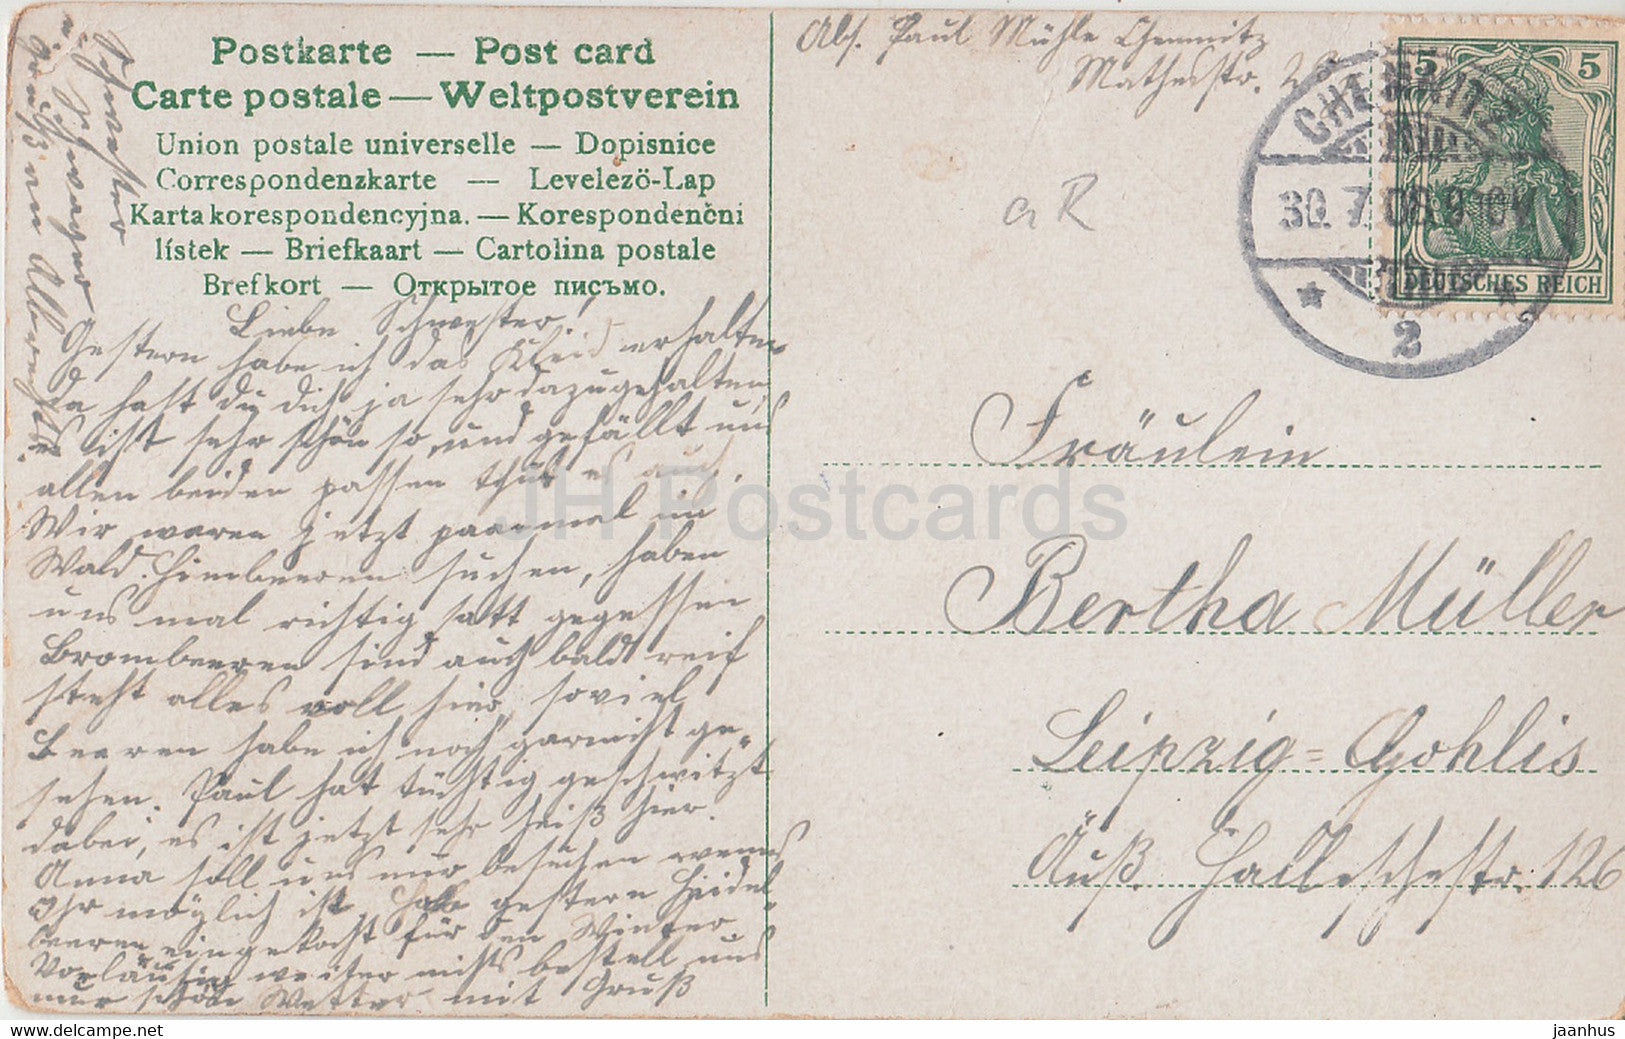 Postkarte — Post card
Carte postale — Weltpostverein
Union postale universelle — Dopisnice
Correspondenzkarte — Levelezö-Lap
Karta korespondencyjna. — Korespondenční
lístek — Briefkaart — Cartolina postale
Brefkort — Открытое письмо.
Liebe Schwester!
Gestern habe ich das Kleid erhalten
da hast du dich ja sehr dazugehalten,
es ist sehr schön so und gefällt uns
allen beiden passen thut es auch.
Wir waren jetzt paarmal im
Wald Himbeeren suchen, haben
uns mal richtig satt gegessen
Brombeeren sind auch bald reif
steht alles voll hier, soviel
Beeren habe ich noch garnicht ge=
sehen. Paul hat tüchtig geschwitzt
dabei, es ist jetzt sehr heiß hier.
Anna soll uns nur besuchen wenns
Ihr möglich ist. Habe gestern Heidel=
beeren eingekocht für den Winter.
Vorläufig weiter nichts bestell uns
nur schöne Wetter mit Gruß
Schwester
u. Schwager
u. Grüße an Albrechts.
Abs. Paul Mühle Chemnitz
Mathesstr.
CHEMNITZ
30. 7. 08. 9
2
5 5
DEUTSCHES REICH
a R
Fräulein
Bertha Müller
Leipzig=Gohlis
Äuß. Halleschestr. 126
JH Postcards
www.delcampe.net
jaanhus